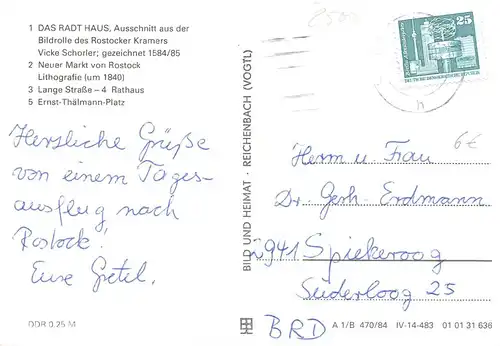 1 DAS RADT HAUS, Ausschnitt aus der
Bildrolle des Rostocker Kramers
Vicke Schorler; gezeichnet 1584/85
2 Neuer Markt von Rostock
Lithografie (um 1840)
3 Lange Straße – 4 Rathaus
5 Ernst-Thälmann-Platz
Herzliche Grüße
von einem Tages-
ausflug nach
Rostock!
Eure Gretel.
DDR 0.25 M
BILD UND HEIMAT · REICHENBACH (VOGTL)
25
6€
Herrn u. Frau
Dr. Gerh. Erdmann
2941 Spiekeroog
Süderloog 25
BRD
A 1/B 470/84 IV-14-483 01 01 31 636